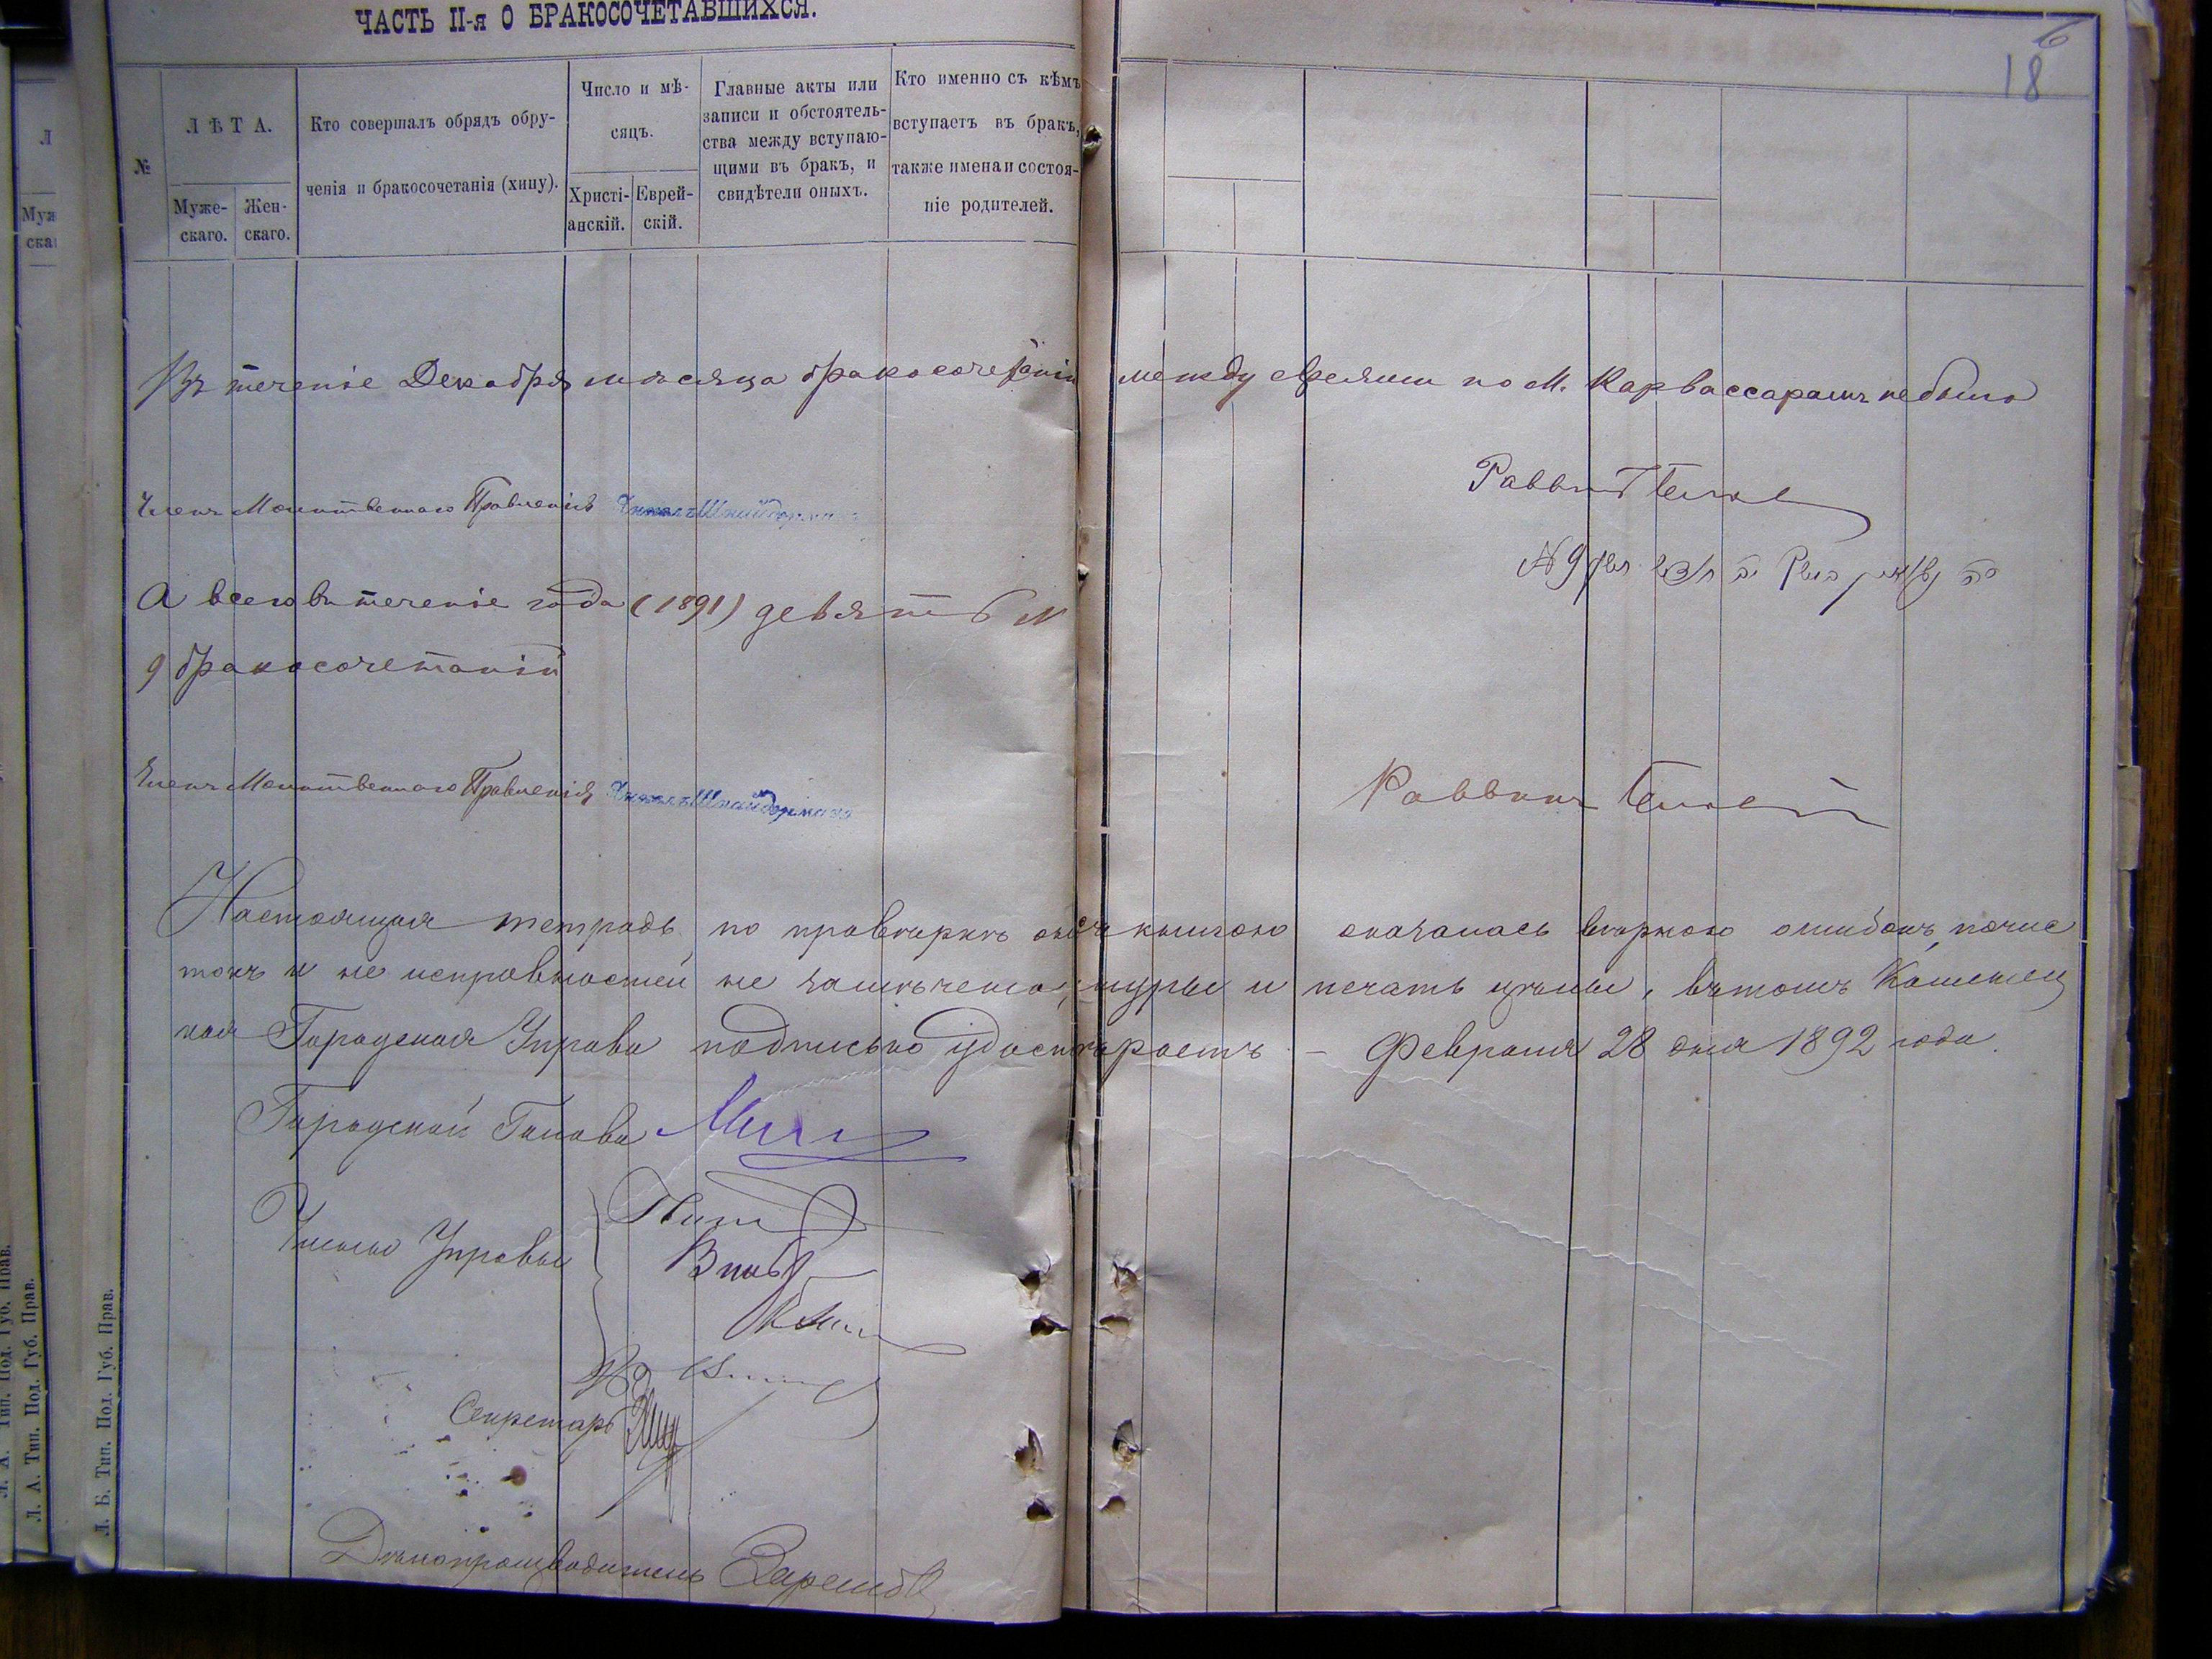 ЧАСТЬ II-я О БРАКОСОЧЕТАВШИХСЯ.
18
№
ЛѢТА.
Муже-
скаго.
Жен-
скаго.
Кто совершалъ обрядъ обру-
ченія и бракосочетанія (хипу).
Число и мѣ-
сяцъ.
Христі-
анскій.
Еврей-
скій.
Главные акты или
записи и обстоятель-
ства между вступаю-
щими въ бракъ, и
свидѣтели оныхъ.
Кто именно съ кѣмъ
вступаетъ въ бракъ,
также имена и состоя-
ніе родителей.
Въ теченіе Декабря мѣсяца бракосочетаній между евреями по М. Карвассарамъ не было
Раввинъ
Членъ Молитвеннаго Правленія Шнайдерманъ
А всего въ теченіе года (1891) девять №
9 бракосочетаній
Членъ Молитвеннаго Правленія Шнайдерманъ
Раввинъ
Настоящая тетрадь по провѣркѣ съ книгою оказалась вѣрною ошибокъ, почис
токъ и не исправностей не замѣчено, шнуры и печать цѣлы, въ томъ Каменец
кая Городская Управа подписью удостовѣряетъ – Февраля 28 дня 1892 года.
Городской Голова
Члены Управы
Секретарь
Дѣлопроизводитель
Л. Б. Тип. Под. Губ. Прав.
Л. А. Тип. Под. Губ. Прав.
Л. А. Тип. Под. Губ. Прав.